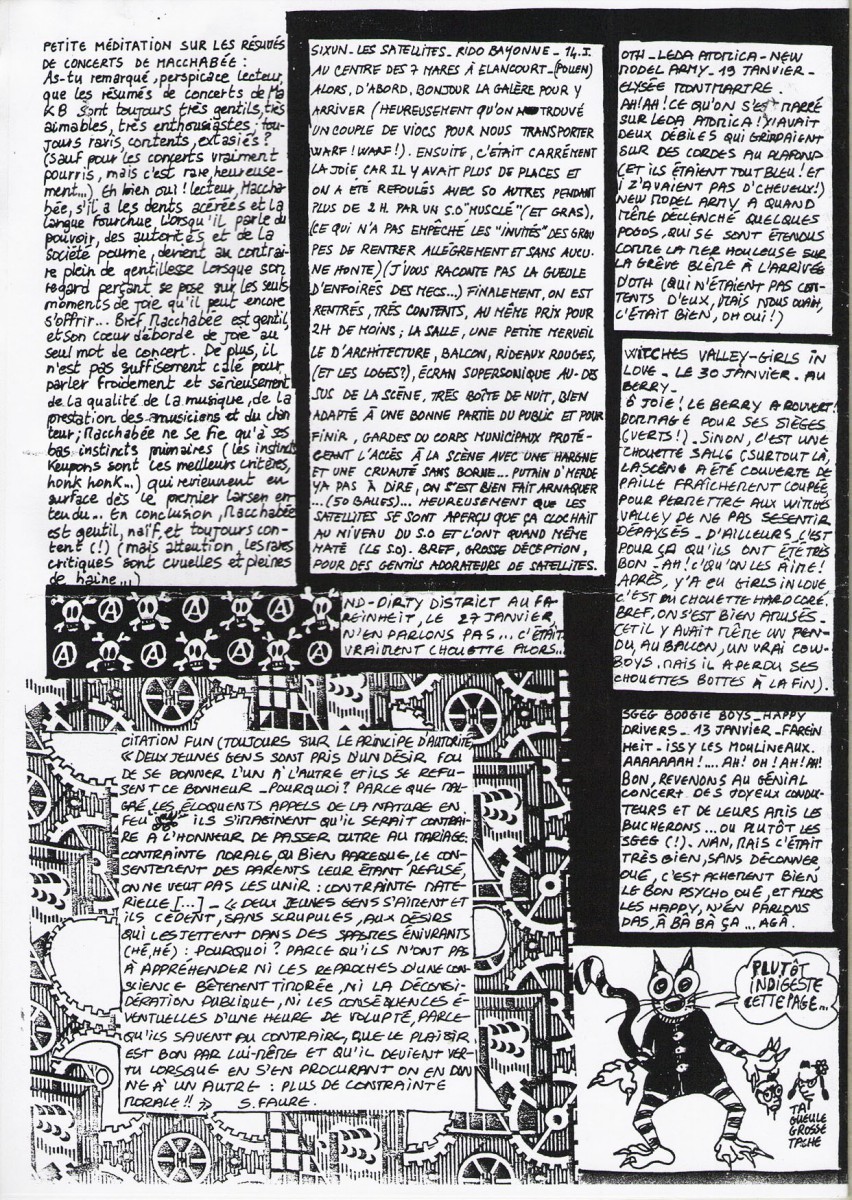 PETITE MÉDITATION SUR LES RÉSUMÉS
DE CONCERTS DE MACCHABÉE :
As-tu remarqué, perspicace lecteur,
que les résumés de concerts de Ma
KB sont toujours très gentils, très
aimables, très enthousiastes, tou-
jours ravis, contents, extasiés ?
(sauf pour les concerts vraiment
pourris, mais c'est rare, heureuse-
ment...) Eh bien oui ! lecteur, Maccha-
bée, s'il a les dents acérées et la
langue fourchue lorsqu'il parle du
pouvoir, des autorités et de la
société pourrie, devient au contrai-
re plein de gentillesse lorsque son
regard perçant se pose sur les seuls
moments de joie qu'il peut encore
s'offrir... Bref Macchabée est gentil,
et son cœur déborde de joie au
seul mot de concert. De plus, il
n'est pas suffisement calé pour
parler froidement et sérieusement
de la qualité de la musique, de la
prestation des musiciens et du chan
teur ; Macchabée ne se fie qu'à ses
bas instincts primaires (les instincts
Keupons sont les meilleurs critères,
honk honk...) qui reviennent en
surface dès le premier larsen en-
tendu... En conclusion, Macchabée
est gentil, naïf, et toujours con-
tent (!) (mais attention, les rares
critiques sont cruelles et pleines
de haine...)
SIXUN - LES SATELLITES - RIDO BAYONNE - 14.I.
AU CENTRE DES 7 MARES À ELANCOURT - (POUEN)
ALORS, D'ABORD, BONJOUR LA GALÈRE POUR Y
ARRIVER (HEUREUSEMENT QU'ON TROUVÉ
UN COUPLE DE VIOCS POUR NOUS TRANSPORTER
WARF ! WARF !). ENSUITE, C'ÉTAIT CARRÉMENT
LA JOIE, CAR IL Y AVAIT PLUS DE PLACES ET
ON A ÉTÉ REFOULÉS AVEC 50 AUTRES PENDANT
PLUS DE 2H. PAR UN S.O "MUSCLÉ" (ET GRAS),
(CE QUI N'A PAS EMPÊCHÉ LES "INVITÉS" DES GROU
PES DE RENTRER ALLÉGREMENT ET SANS AUCU-
NE HONTE) (J'VOUS RACONTE PAS LA GUEULE
D'ENFOIRÉS DES MECS...) FINALEMENT, ON EST
RENTRÉS, TRÈS CONTENTS, AU MÊME PRIX POUR
2H DE MOINS ; LA SALLE, UNE PETITE MERVEIL
LE D'ARCHITECTURE, BALCON, RIDEAUX ROUGES,
(ET LES LOGES ?), ÉCRAN SUPERSONIQUE AU-DES
SUS DE LA SCÈNE, TRÈS BOÎTE DE NUIT, BIEN
ADAPTÉ À UNE BONNE PARTIE DU PUBLIC ET POUR
FINIR, GARDES DU CORPS MUNICIPAUX PROTÉ-
GEANT L'ACCÈS À LA SCÈNE AVEC UNE HARGNE
ET UNE CRUAUTÉ SANS BORNE... PUTAIN D'MERDE
YA PAS À DIRE, ON S'EST BIEN FAIT ARNAQUER
... (50 BALLES)... HEUREUSEMENT QUE LES
SATELLITES SE SONT APERÇU QUE ÇA CLOCHAIT
AU NIVEAU DU S.O ET L'ONT QUAND MÊME
MATÉ (LE S.O). BREF, GROSSE DÉCEPTION,
POUR DES GENTILS ADORATEURS DE SATELLITES.
ND - DIRTY DISTRICT AU FA-
REINHEIT, LE 27 JANVIER,
N'EN PARLONS PAS... C'ÉTAIT
VRAIMENT CHOUETTE ALORS...
CITATION FUN (TOUJOURS SUR LE PRINCIPE D'AUTORITÉ
« DEUX JEUNES GENS SONT PRIS D'UN DÉSIR FOU
DE SE DONNER L'UN À L'AUTRE ET ILS SE REFU-
SENT CE BONHEUR _ POURQUOI ? PARCE QUE MAL-
GRÉ LES ÉLOQUENTS APPELS DE LA NATURE EN
FEU ILS S'IMAGINENT QU'IL SERAIT CONTRAI-
RE À L'HONNEUR DE PASSER OUTRE AU MARIAGE :
CONTRAINTE MORALE, OU BIEN PARCEQUE, LE CON-
SENTEMENT DES PARENTS LEUR ÉTANT REFUSÉ,
ON NE VEUT PAS LES UNIR : CONTRAINTE MATÉ-
RIELLE [...] _ « DEUX JEUNES GENS S'AIMENT ET
ILS CÈDENT, SANS SCRUPULES, AUX DÉSIRS
QUI LES JETTENT DANS DES SPASMES ÉNIVRANTS
(HÉ, HÉ) : POURQUOI ? PARCE QU'ILS N'ONT PAS
À APPRÉHENDER NI LES REPROCHES D'UNE CON-
SCIENCE BÊTEMENT TIMORÉE, NI LA DÉCONSI-
DÉRATION PUBLIQUE, NI LES CONSÉQUENCES É-
VENTUELLES D'UNE HEURE DE VOLUPTÉ, PARCE-
QU'ILS SAVENT AU CONTRAIRE, QUE LE PLAISIR
EST BON PAR LUI-MÊME ET QU'IL DEVIENT VER-
TU LORSQUE EN S'EN PROCURANT ON EN DON
NE À UN AUTRE : PLUS DE CONTRAINTE
MORALE !! » S. FAURE.
OTH - LEDA ATOMICA - NEW
MODEL ARMY - 19 JANVIER -
ELYSÉE MONTMARTRE.
AH ! AH ! CE QU'ON S'EST MARRÉ
SUR LEDA ATOMICA ! Y'AVAIT
DEUX DÉBILES QUI GRIMPAIENT
SUR DES CORDES AU PLAFOND
(ET ILS ÉTAIENT TOUT BLEU ! ET
I Z'AVAIENT PAS D'CHEVEUX !)
NEW MODEL ARMY A QUAND
MÊME DÉCLENCHÉ QUELQUES
POGOS, QUI SE SONT ÉTENDUS
COMME LA MER HOULEUSE SUR
LA GRÊVE BLÊME À L'ARRIVÉE
D'OTH (QUI N'ÉTAIENT PAS CON-
TENTS D'EUX, MAIS NOUS OUAH,
C'ÉTAIT BIEN, OH OUI !)
WITCHES VALLEY - GIRLS IN
LOVE - LE 30 JANVIER - AU
BERRY -
Ô JOIE ! LE BERRY A ROUVERT !
DOMMAGE POUR SES SIÈGES
(VERTS !) - SINON, C'EST UNE
CHOUETTE SALLE (SURTOUT LÀ,
LA SCÈNE A ÉTÉ COUVERTE DE
PAILLE FRAÎCHEMENT COUPÉE,
POUR PERMETTRE AUX WITCHES
VALLEY DE NE PAS SE SENTIR
DÉPAYSÉS - D'AILLEURS, C'EST
POUR ÇA QU'ILS ONT ÉTÉ TRÈS
BON - AH ! C'QU'ON LES AIME !
APRÈS, Y'A EU GIRLS IN LOVE
C'EST DU CHOUETTE HARDCORE.
BREF, ON S'EST BIEN AMUSÉS -
(ET IL Y AVAIT MÊME UN PEN-
DU AU BALLON, UN VRAI COW-
BOYS, MAIS IL A PERDU SES
CHOUETTES BOTTES À LA FIN).
SGEG BOOGIE BOYS - HAPPY
DRIVERS - 13 JANVIER - FAREIN
HEIT - ISSY LES MOULINEAUX.
AAAAAAAH !.... AH ! OH ! AH ! AH !
BON, REVENONS AU GÉNIAL
CONCERT DES JOYEUX CONDUC-
TEURS ET DE LEURS AMIS LES
BUCHERONS... OU PLUTÔT LES
SGEG (!). NAN, MAIS C'ÉTAIT
TRÈS BIEN, SANS DÉCONNER,
OUÉ, C'EST ACHEMENT BIEN
LE BON PSYCHO OUÉ, ET ALORS
LES HAPPY, N'EN PARLONS
PAS, À BÂ BÂ ÇA ... AGÂ.
PLUTÔT
INDIGESTE
CETTE PAGE...
TA
GUEULE
GROSSE
TACHE